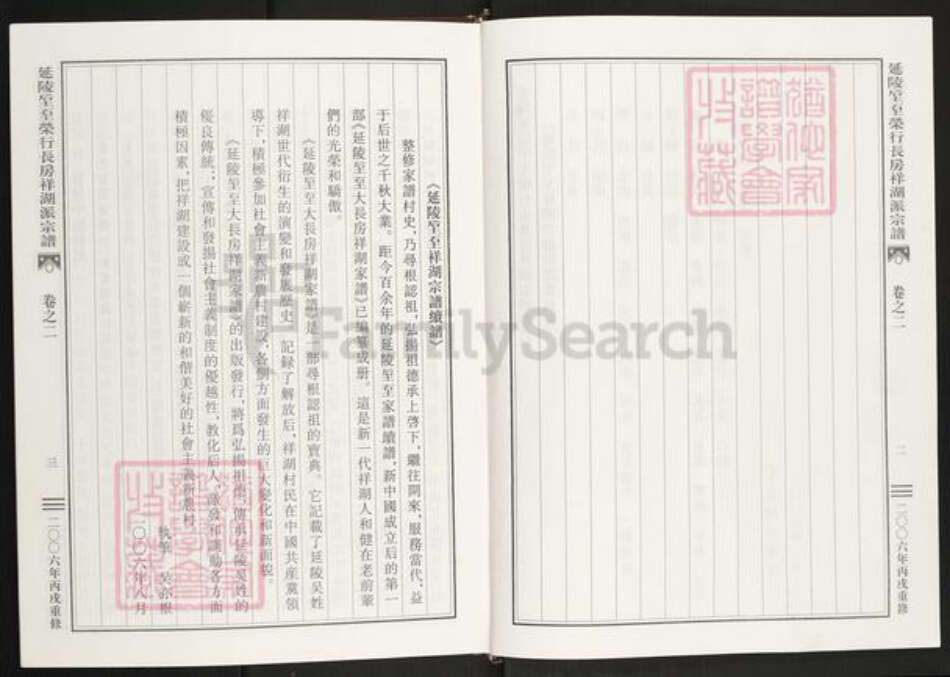 延陵㘴至榮行長房祥湖派宗譜
卷之二
二
二〇〇六年丙戌重修
猶他家
譜學會
收藏
《延陵㘴至祥湖宗譜續譜》
整修家譜村史，乃尋根認祖，弘揚祖德承上啓下，繼往開來、服務當代，益
于后世之千秋大業。距今百余年的延陵㘴至家譜續譜，新中國成立后的第一
部《延陵㘴至大長房祥湖家譜》已編纂成册。這是新一代祥湖人和健在老前輩
們的光榮和驕傲。
《延陵㘴至大長房祥湖家譜》是一部尋根認祖的寶典。它記載了延陵吳姓
祥湖世代衍生的演變和發展歷史，記録了解放后，祥湖村民在中國共産黨領
導下，積極參加社會主義新農村建設，各個方面發生的巨大變化和新面貌。
《延陵㘴至大長房祥湖家譜》的出版發行，將爲弘揚祖德，傳承延陵吳姓的
優良傳統；宣傳和發揚社會主義制度的優越性，教化后人，激發和調動各方面
積極因素，把祥湖建設成一個嶄新的和偕美好的社會主義新農村。
執筆 吳亦
二〇〇六年八月
猶他家
譜學會
收藏
延陵㘴至榮行長房祥湖派宗譜
卷之二
三
二〇〇六年丙戌重修
FamilySearch